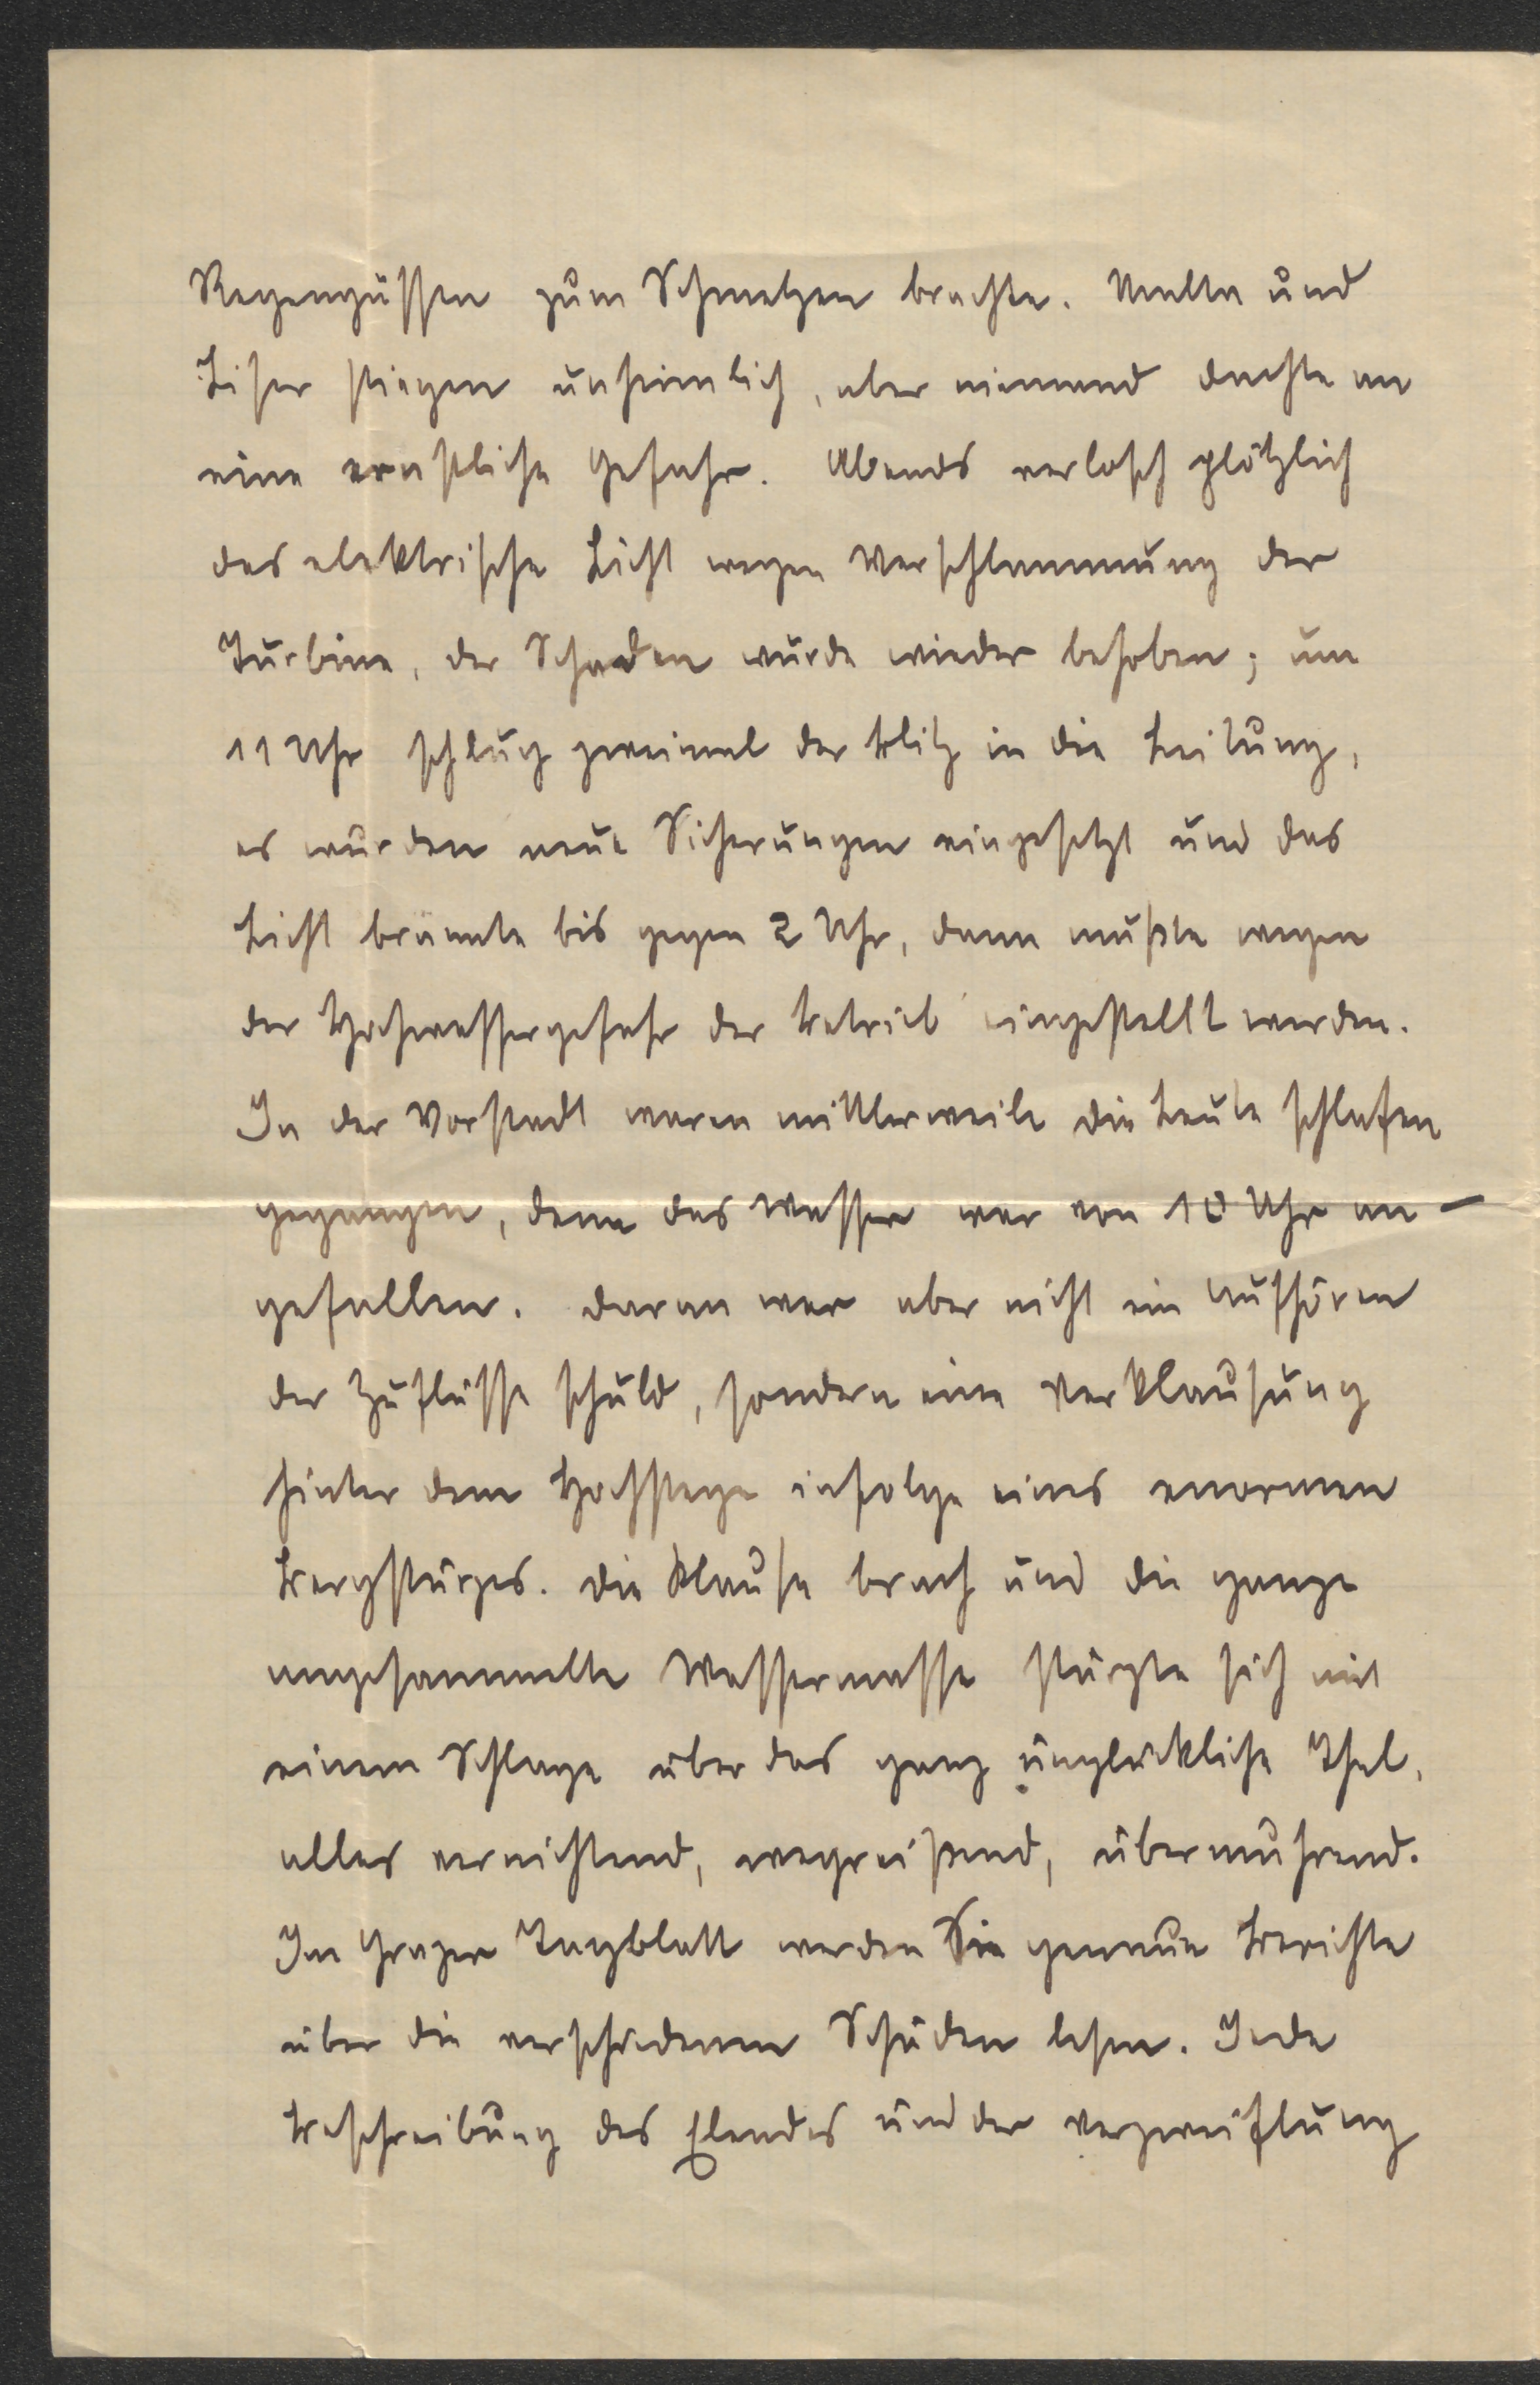 Regengüssen zum Schmelzen brachte. Malta und
Liser stiegen unheimlich, aber niemand dachte an
eine ernstliche Gefahr. Abends verlosch plötzlich
das elektrische Licht wegen Verschlammung der
Turbine, der Schaden wurde wieder behoben; um
11 Uhr schlug zweimal der Blitz in die Leitung,
es wurden neue Sicherungen eingesetzt und das
Licht brannte bis gegen 2 Uhr, dann mußte wegen
der Hochwassergefahr der Betrieb eingestellt werden.
In der Vorstadt waren mittlerweile die Leute schlafen
gegangen, denn das Wasser war von 10 Uhr an -
gefallen. Daran war aber nicht ein Aufhören
der Zuflüsse schuld, sondern eine Verklausung
hinter dem Hochstege infolge eines enormen
Bergsturzes. Die Klause brach und die ganze
angesammelte Wassermasse stürzte sich mit
einem Schlage über das ganz unglückliche Thal,
alles vernichtend, wegreißend, übermuhrend.
Im Grazer Tagblatt werden Sie genaue Berichte
über die verschiedenen Schäden lesen. Jede
Beschreibung des Elendes und der Verzweiflung